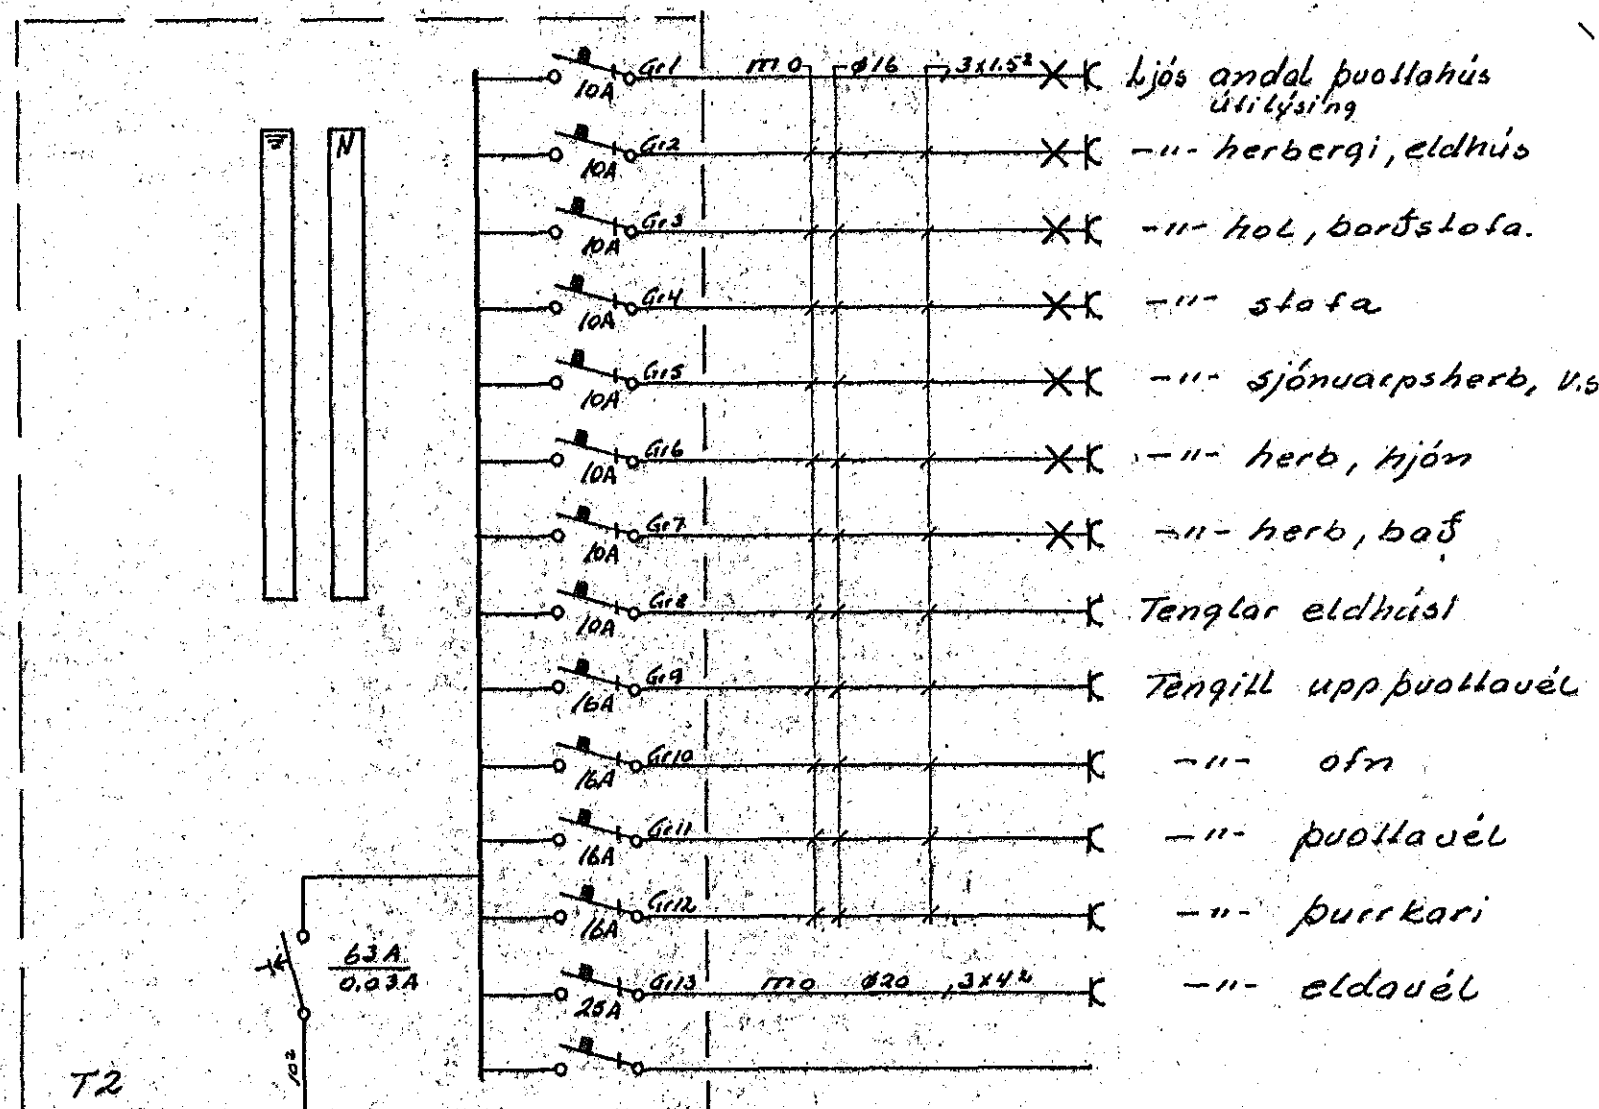 Gr1 m0 ø16 ,3x1.5² Ljós andd, þvottahús
10A útilýsing
N
Gr2 -"- herbergi, eldhús
10A
Gr3 -"- hol, borðstofa.
10A
Gr4 -"- stofa
10A
Gr5 -"- sjónvarpsherb, v.s
10A
Gr6 -"- herb, hjón
10A
Gr7 -"- herb, bað
10A
Gr8 Tenglar eldhúsi
10A
Gr9 Tengill uppþvottavél
16A
Gr10 -"- ofn
16A
Gr11 -"- þvottavél
16A
Gr12 -"- þurrkari
16A
63A
0.03A
Gr13 m0 ø20 ,3x4² -"- eldavél
25A
10²
T2